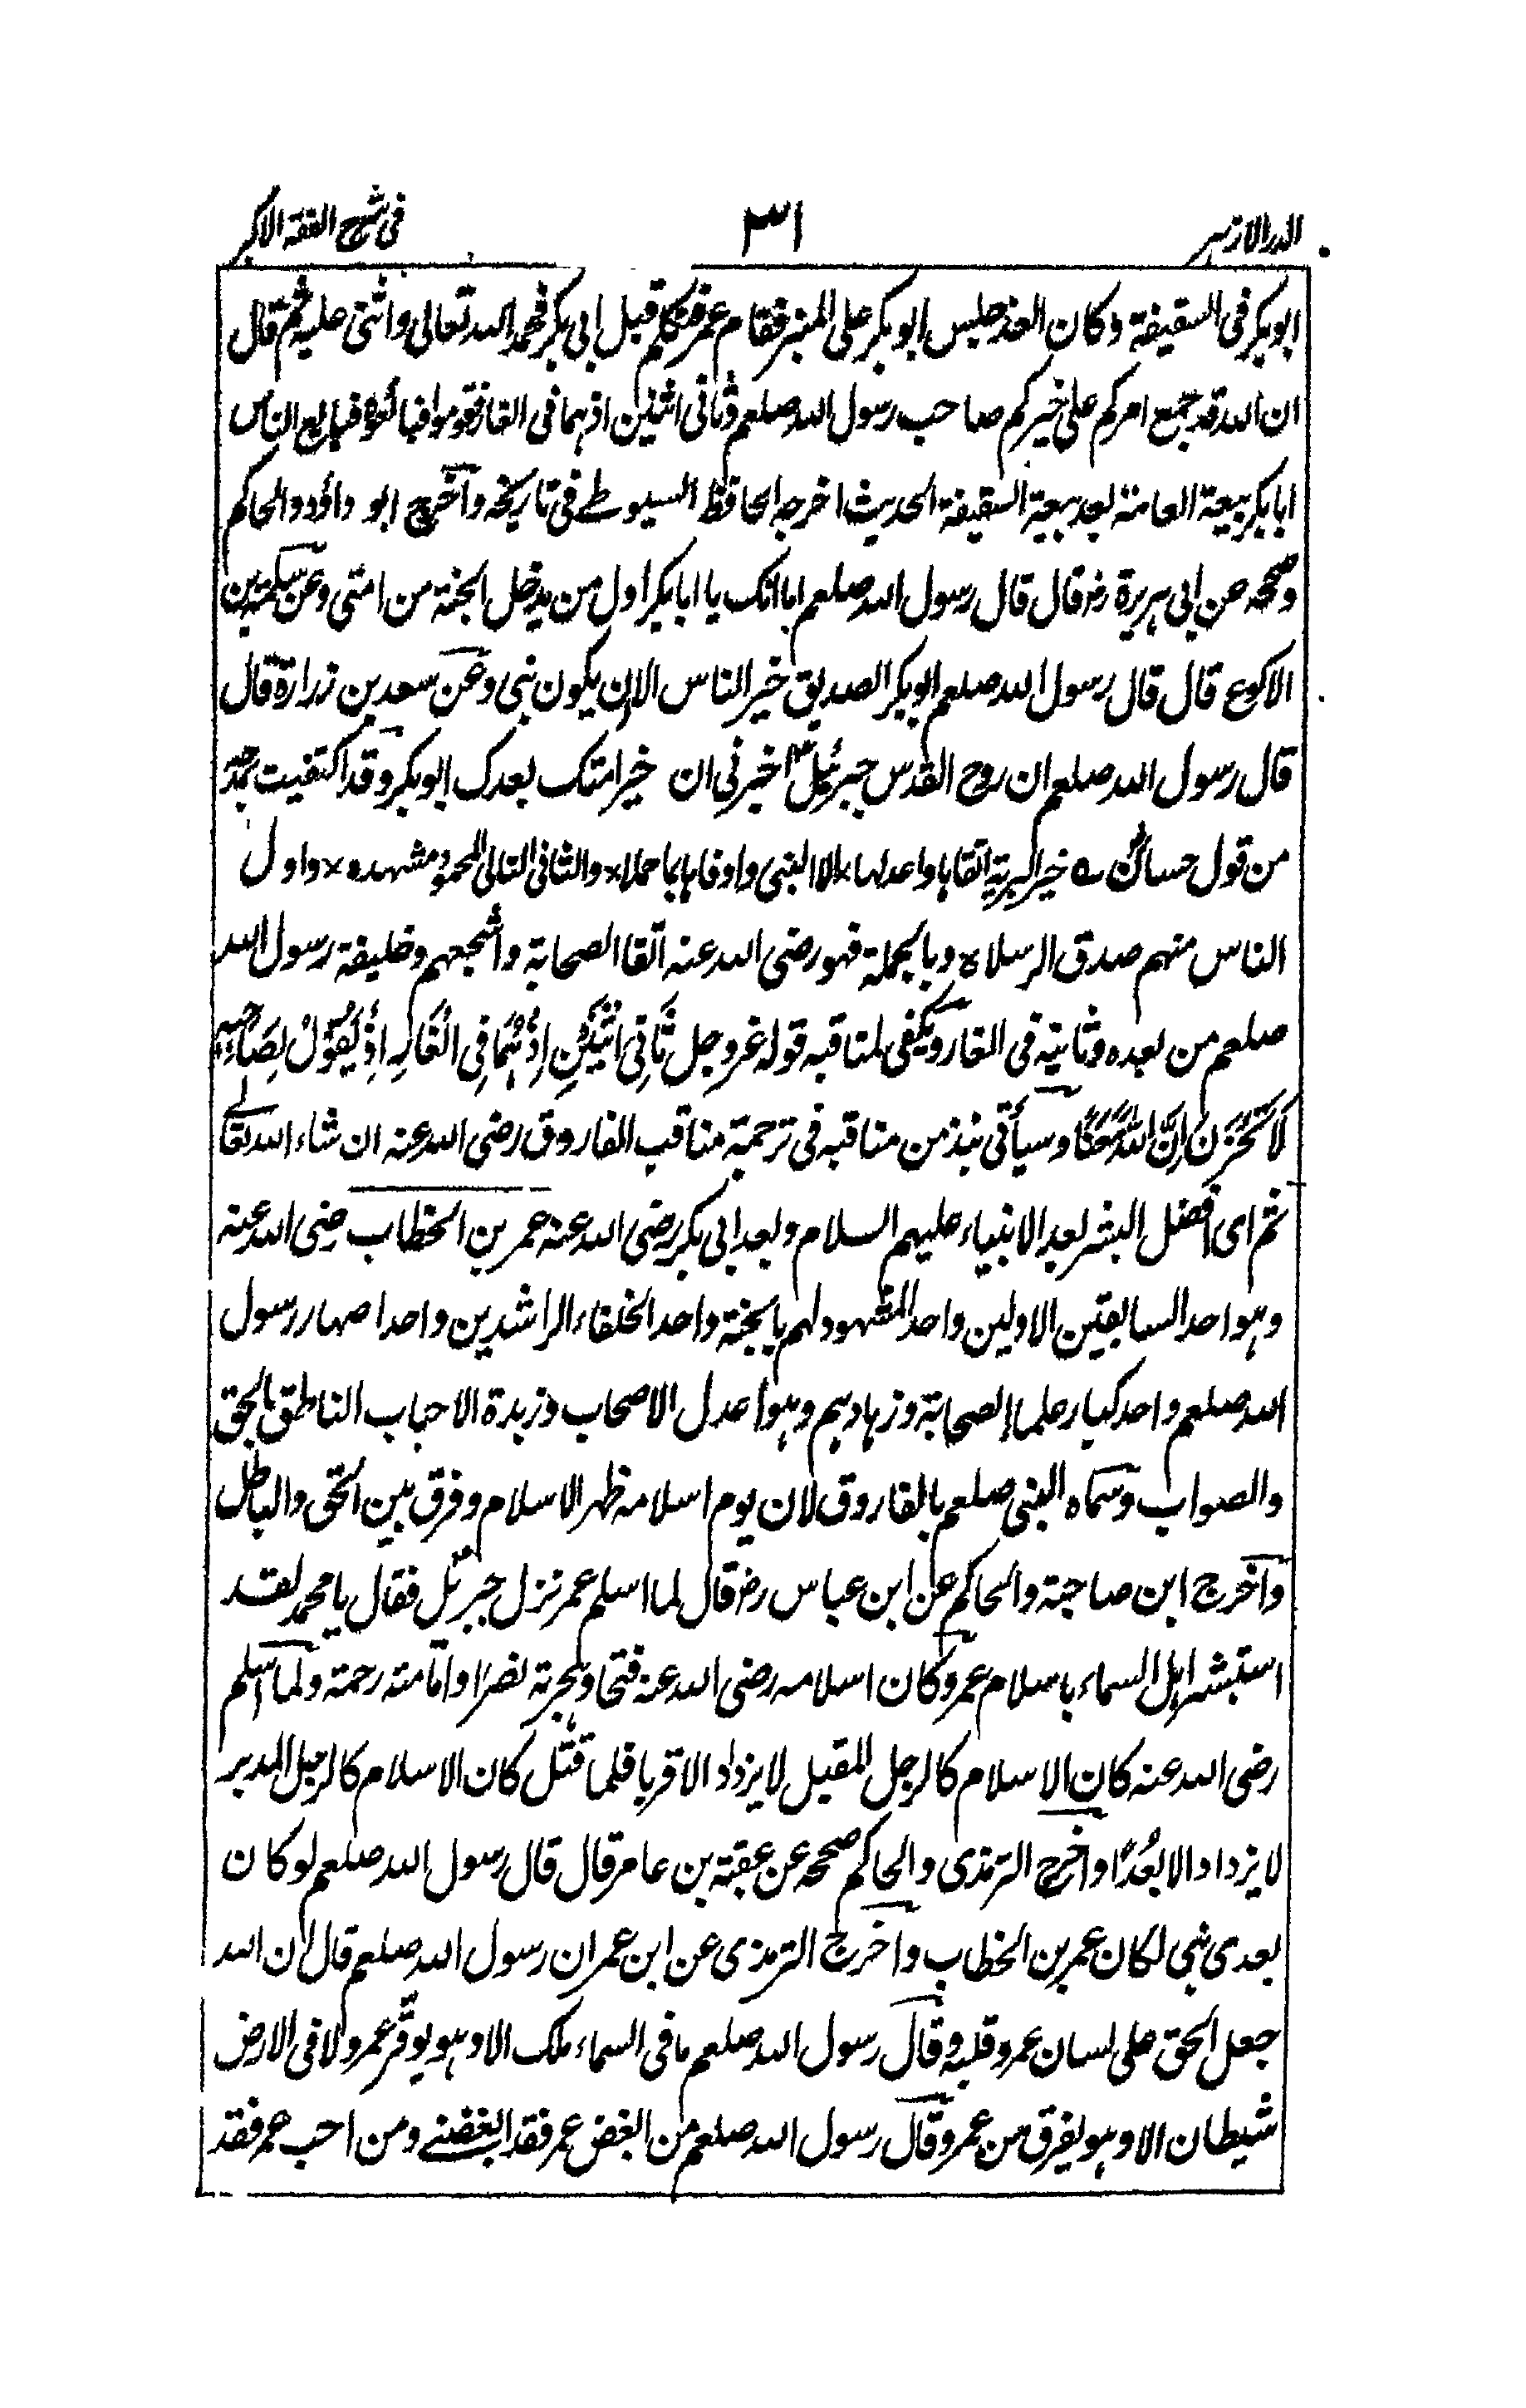 الدر الازهر ٣١ فى شرح الفقه الاكبر
ابو بكر فى السقيفة وكان الغد جلس ابو بكر على المنبر فقام عمر فتكلم قبل ابى بكر فحمد الله تعالى واثنى عليه ثم قال
ان الله قد جمع امركم على خيركم صاحب رسول الله صلعم وثانى اثنين اذ هما فى الغار فقوموا فبائعوه فبايع الناس
ابا بكر بيعة العامة بعد بيعة السقيفة الحديث اخرجه الحافظ السيوطے فى تاريخه واخرج ابو داؤد والحاكم
وصححه عن ابى هريرة رضـ قال قال رسول الله صلعم اما انك يا ابا بكر اول من يدخل الجنة من امتى وعن سلمة بن
الاكوع قال قال رسول الله صلعم ابو بكر الصديق خير الناس الا ان يكون نبى وعن سعد بن زرارة قال
قال رسول الله صلعم ان روح القدس جبرئيل اخبرنى ان خير امتك بعدك ابو بكر وقد اكتفيت بمدحة
من قول حسان خير البرية اتقاها واعدلها × الا النبى واوفاها بما حملا × والثانى التالى المحمود مشهده × واول
الناس منهم صدق الرسلا ه وبالجملة فهو رضى الله عنه اتقا الصحابة واشجعهم وخليفة رسول الله
صلعم من بعده وثانيه فى الغار ويكفى لمناقبه قوله عز وجل ثَانِىَ اثْنَيْنِ اِذْ هُمَا فِى الْغَارِ اِذْ يَقُوْلُ لِصَاحِبِهٖ
لَا تَحْزَنْ اِنَّ اللّٰهَ مَعَنَا وسيأتى نبذ من مناقبه فى ترجمة مناقب الفاروق رضى الله عنه ان شاء الله تعالے
ثم اى افضل البشر بعد الانبياء عليهم السلام وبعد ابى بكر رضى الله عنه عمر بن الخطاب رضى الله عنه
وهو احد السابقين الاولين واحد المشهود لهم بالجنة واحد الخلفاء الراشدين واحد اصهار رسول
الله صلعم واحد كبار علماء الصحابة وزهادهم وهو اعدل الاصحاب وزبدة الاحباب الناطق بالحق
والصواب وسماه النبى صلعم بالفاروق لان يوم اسلامه ظهر الاسلام وفرق بين الحق والباطل
واخرج ابن ماجة والحاكم عن ابن عباس رضـ قال لما اسلم عمر نزل جبرئل فقال يا محمد لقد
استبشر اهل السماء باسلام عمر وكان اسلامه رضى الله عنه فتحا وهجرته نصرًا وامامته رحمة ولما اسلم
رضى الله عنه كان الاسلام كالرجل المقبل لا يزداد الا قربا فلما قتل كان الاسلام كالرجل المدبر
لا يزداد الا بعُدًا واخرج الترمذى والحاكم صححه عن عقبة بن عامر قال قال رسول الله صلعم لو كان
بعدى نبى لكان عمر بن الخطاب واخرج الترمذى عن ابن عمر ان رسول الله صلعم قال ان الله
جعل الحق على لسان عمر وقلبه وقال رسول الله صلعم ما فى السماء ملك الا وهو يوقّر عمر ولا فى الارض
شيطان الا وهو يفرق من عمر وقال رسول الله صلعم من ابغض عمر فقد ابغضنے ومن احب عمر فقد